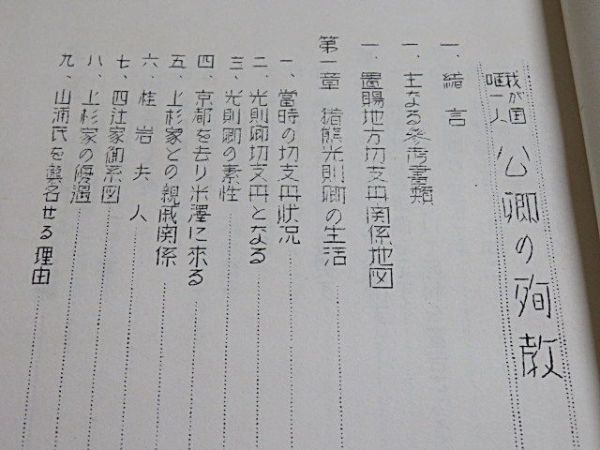 我が国唯一人 公卿の殉教
一、緒言
一、主なる参考書類
一、置賜地方切支丹関係地図
第一章 猪熊光則卿の生活
一、當時の切支丹状況
二、光則卿切支丹となる
三、光則卿の素性
四、京都を去り米澤に来る
五、上杉家との親戚関係
六、桂岩夫人
七、四辻家御系図
八、上杉家の優遇
九、山浦氏を異名せる理由